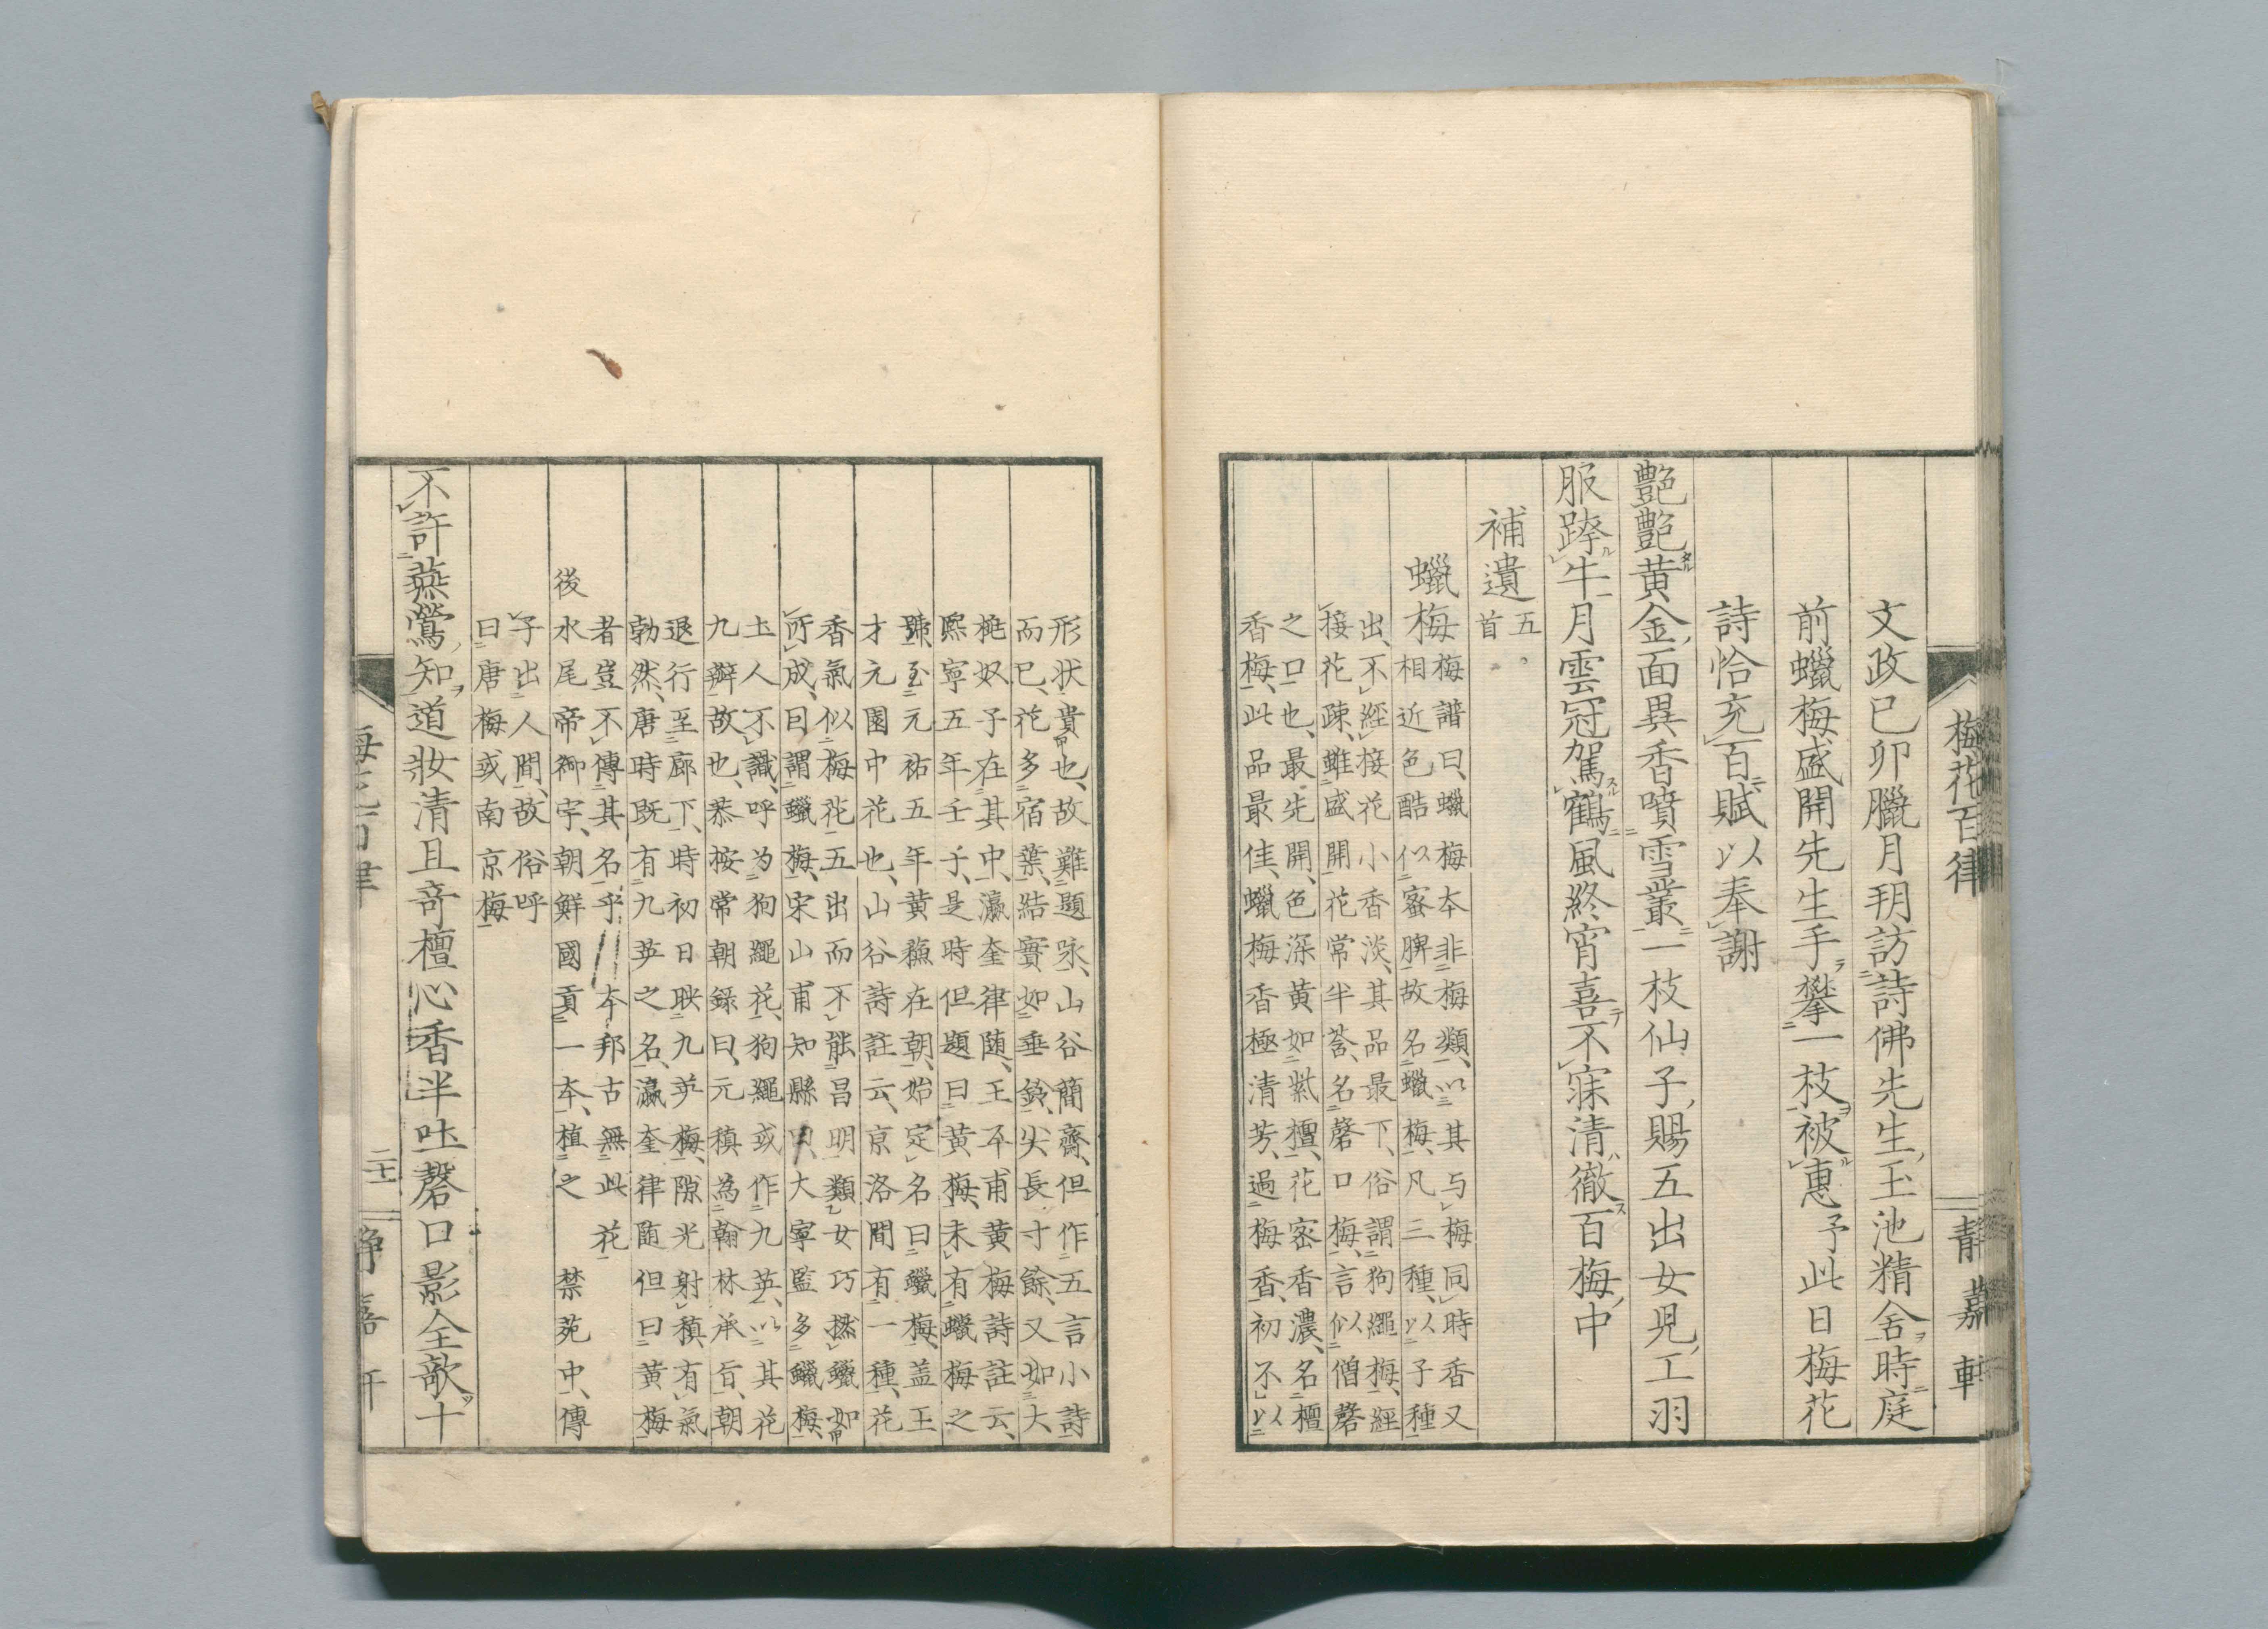 梅花百律
静嘉軒
文政己卯臘月玥訪詩佛先生玉池精舍時庭
前蠟梅盛開先生手攀一枝被惠予此日梅花
詩恰充百賦以奉謝
艶艶黄金面異香噴雪叢一枝仙子賜五出女兒工羽
服跨牛月雲冠駕鶴風終宵喜不寐清徹百梅中
補遺五首
蠟梅
梅譜曰蠟梅本非梅類以其与梅同時香又
相近色酷似蜜脾故名蠟梅凡三種以子種
出不經接花小香淡其品最下俗謂狗繩梅經
接花疎雖盛開花常半含名磬口梅言似僧磬
之口也最先開色深黄如紫檀花密香濃名檀
香梅此品最佳蠟梅香極清芳過梅香初不以
形状貴也故難題咏山谷簡齋但作五言小詩
而已花多宿葉結實如垂鈴尖長寸餘又如大
桃奴子在其中瀛奎律随王平甫黄梅詩註云
熙寧五年壬子是時但題曰黄梅未有蠟梅之
號至元祐五年黄蘓在朝始定名曰蠟梅盖王
才元園中花也山谷詩註云京洛間有一種花
香氣似梅花五出而不能昌明類女巧撚蠟如
所成曰謂蠟梅宋山甫知縣曰大寧監多蠟梅
土人不識呼为狗繩花狗繩或作九英以其花
九辮故也恭按常朝録曰元稹為翰林承旨朝
退行至廊下時初日映九英梅隙光射稹有氣
勃然唐時既有九英之名瀛奎律随但曰黄梅
者豈不傳其名乎本邦古無此花
後水尾帝御宇朝鮮國貢一本植之禁苑中傳
子出人間故俗呼
曰唐梅或南京梅
不許燕鶯知道妝清且奇檀心香半吐磬口影全欹十
静嘉軒